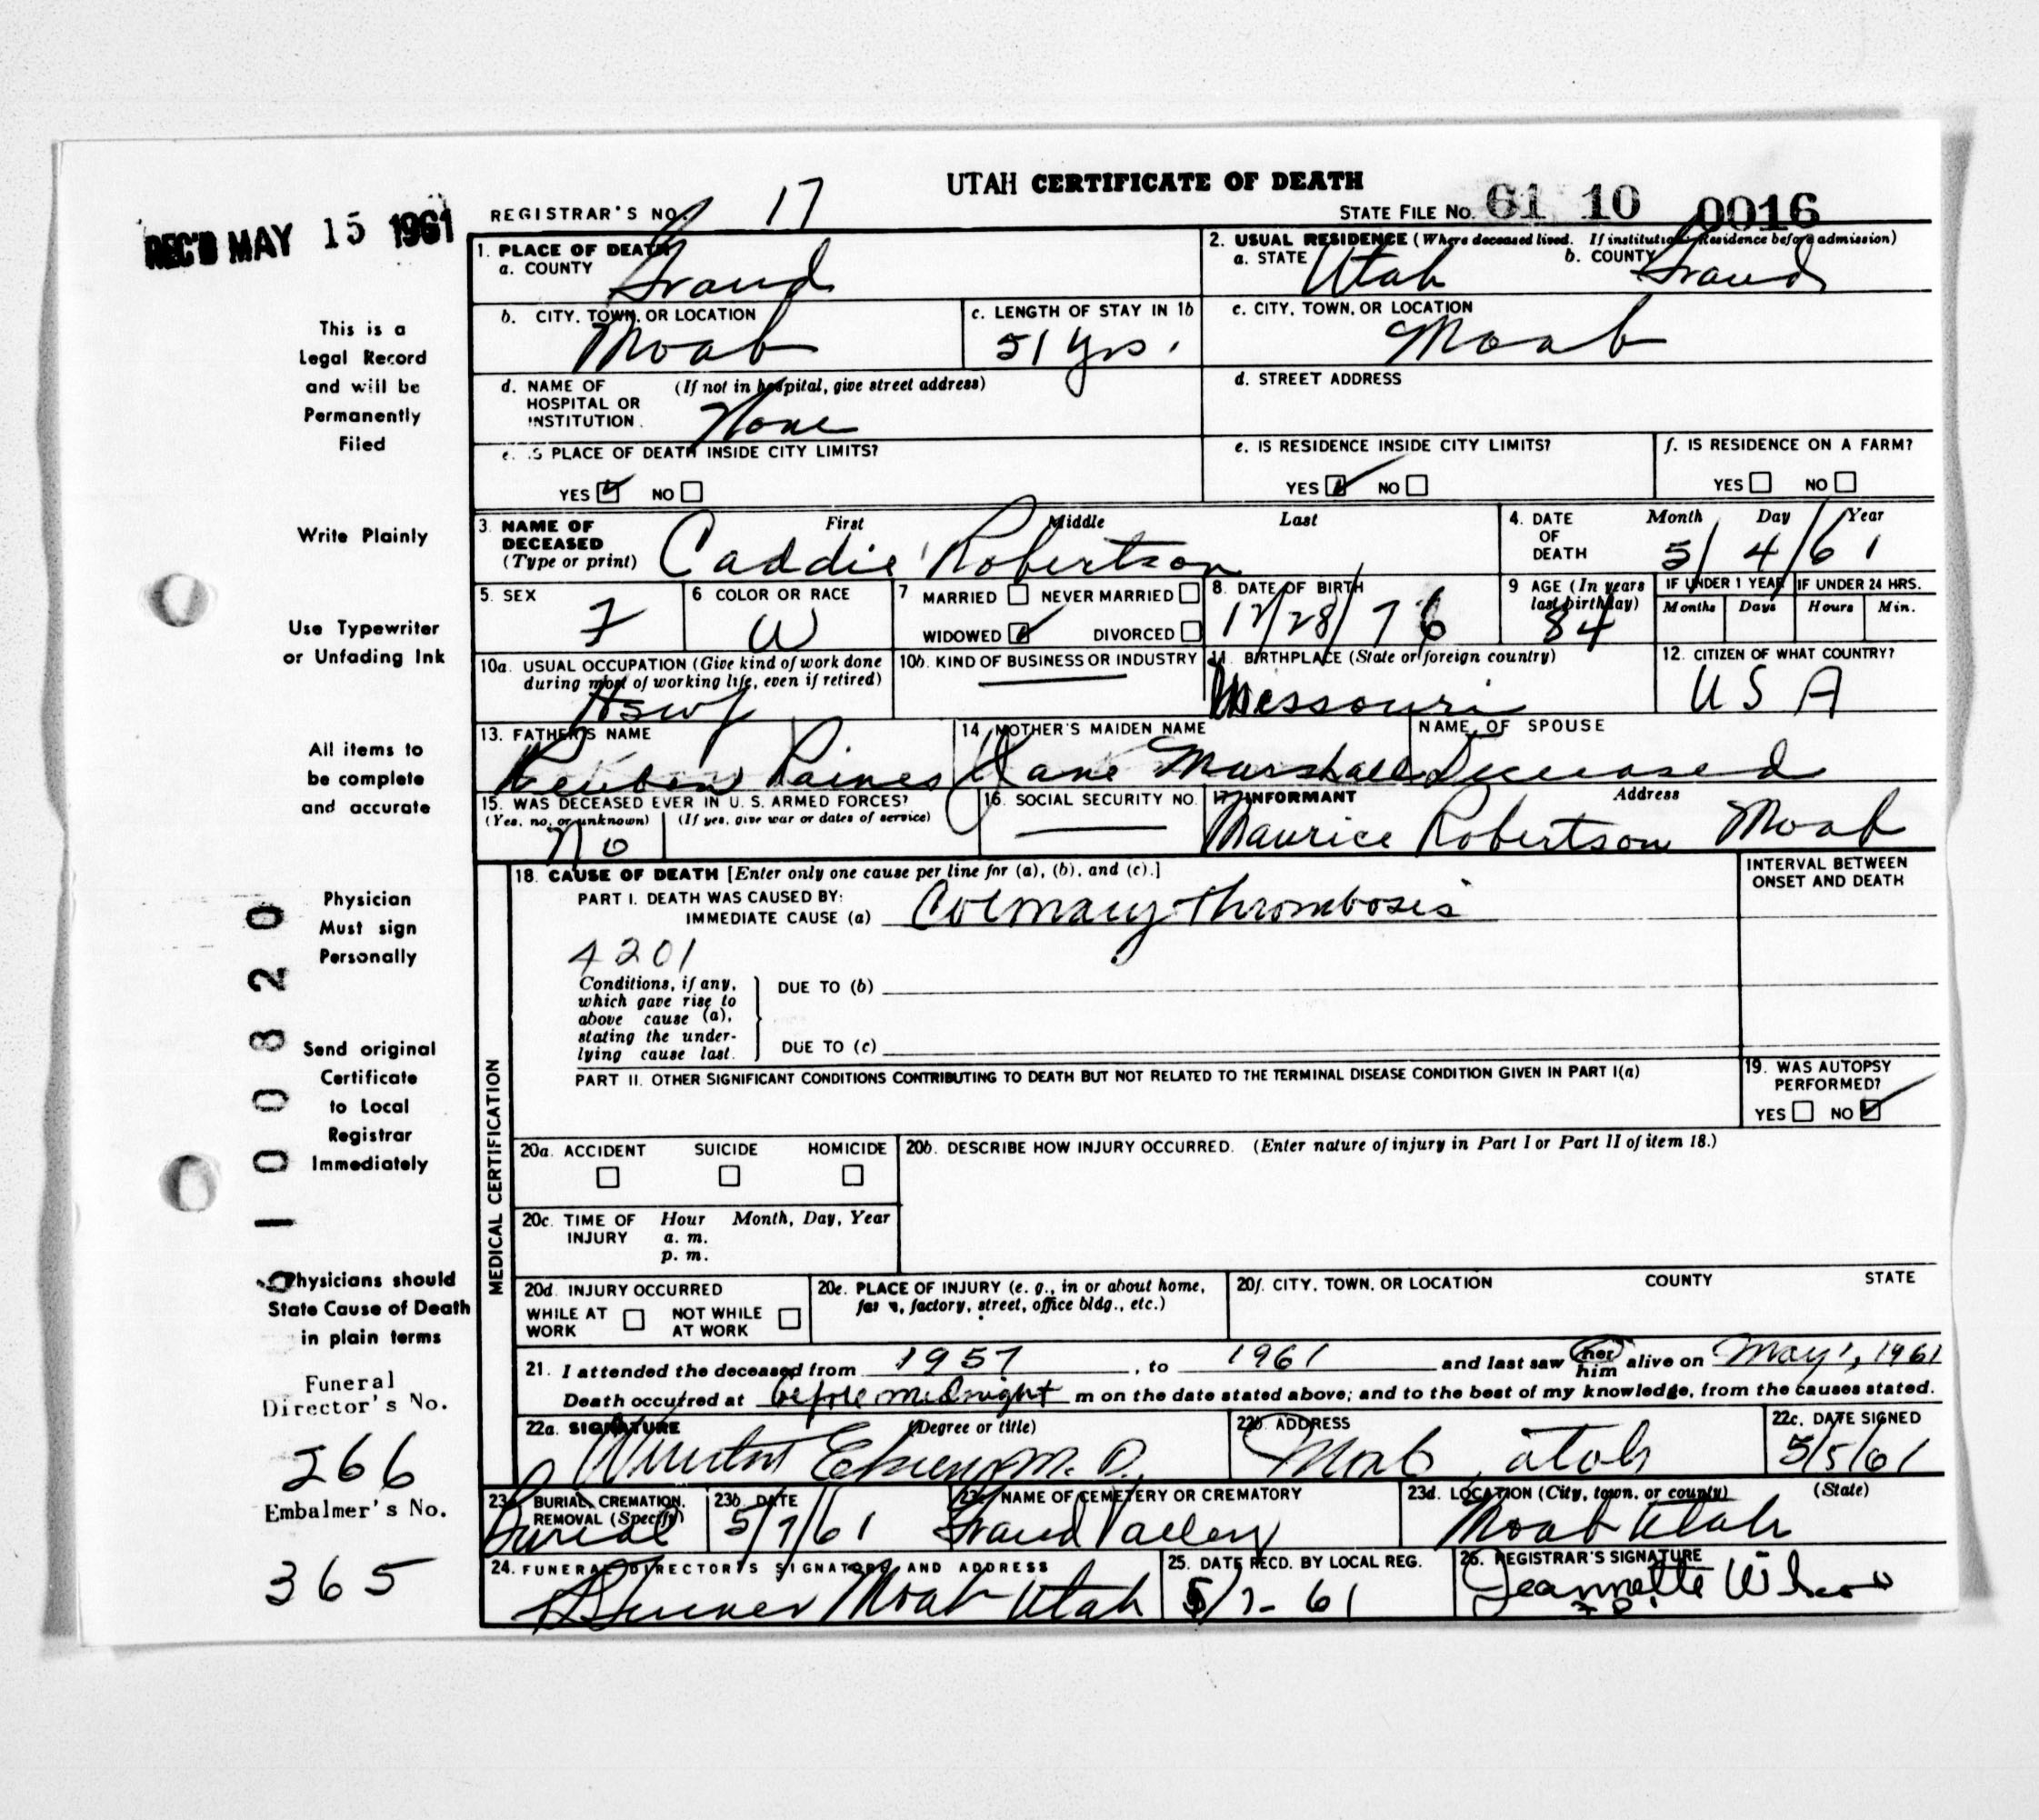 UTAH CERTIFICATE OF DEATH
REC'D MAY 15 1961
REGISTRAR'S NO. 17
STATE FILE No. 61 10 0016
1. PLACE OF DEATH
a. COUNTY Grand
2. USUAL RESIDENCE (Where deceased lived. If institution: Residence before admission)
a. STATE Utah b. COUNTY Grand
b. CITY, TOWN, OR LOCATION Moab
c. LENGTH OF STAY IN 1b 51 yrs.
c. CITY, TOWN, OR LOCATION Moab
d. NAME OF HOSPITAL OR INSTITUTION (If not in hospital, give street address) None
d. STREET ADDRESS
e. IS PLACE OF DEATH INSIDE CITY LIMITS?
YES NO
e. IS RESIDENCE INSIDE CITY LIMITS?
YES NO
f. IS RESIDENCE ON A FARM?
YES NO
3. NAME OF DECEASED (Type or print) First Middle Last
Caddie Robertson
4. DATE OF DEATH Month Day Year
5/4/61
5. SEX F
6 COLOR OR RACE W
7 MARRIED NEVER MARRIED
WIDOWED DIVORCED
8. DATE OF BIRTH 12/28/76
9 AGE (In years last birthday) 84
IF UNDER 1 YEAR Months Days
IF UNDER 24 HRS. Hours Min.
10a. USUAL OCCUPATION (Give kind of work done during most of working life, even if retired) Hswf
10b. KIND OF BUSINESS OR INDUSTRY
11. BIRTHPLACE (State or foreign country) Messouri
12. CITIZEN OF WHAT COUNTRY? USA
13. FATHER'S NAME Reuben Raines
14. MOTHER'S MAIDEN NAME Jane Marshall
NAME OF SPOUSE Deceased
15. WAS DECEASED EVER IN U. S. ARMED FORCES?
(Yes, no, or unknown) (If yes, give war or dates of service)
No
16. SOCIAL SECURITY NO.
17. INFORMANT Address
Maurice Robertson Moab
MEDICAL CERTIFICATION
18. CAUSE OF DEATH [Enter only one cause per line for (a), (b), and (c).]
INTERVAL BETWEEN ONSET AND DEATH
PART I. DEATH WAS CAUSED BY:
IMMEDIATE CAUSE (a) Coronary thrombosis
4201
Conditions, if any, which gave rise to above cause (a), stating the underlying cause last.
DUE TO (b)
DUE TO (c)
PART II. OTHER SIGNIFICANT CONDITIONS CONTRIBUTING TO DEATH BUT NOT RELATED TO THE TERMINAL DISEASE CONDITION GIVEN IN PART I(a)
19. WAS AUTOPSY PERFORMED?
YES NO
20a. ACCIDENT SUICIDE HOMICIDE
20b. DESCRIBE HOW INJURY OCCURRED. (Enter nature of injury in Part I or Part II of item 18.)
20c. TIME OF INJURY Hour Month, Day, Year
a. m.
p. m.
20d. INJURY OCCURRED
WHILE AT WORK NOT WHILE AT WORK
20e. PLACE OF INJURY (e. g., in or about home, farm, factory, street, office bldg., etc.)
20f. CITY, TOWN, OR LOCATION COUNTY STATE
21. I attended the deceased from 1957, to 1961 and last saw her him alive on May 1, 1961
Death occurred at before midnight m on the date stated above; and to the best of my knowledge, from the causes stated.
22a. SIGNATURE (Degree or title) M. D.
22b. ADDRESS Moab, Utah
22c. DATE SIGNED 5/5/61
23a. BURIAL, CREMATION, REMOVAL (Specify) Burial
23b. DATE 5/7/61
23c. NAME OF CEMETERY OR CREMATORY Grand Valley
23d. LOCATION (City, town, or county) (State) Moab Utah
24. FUNERAL DIRECTOR'S SIGNATURE AND ADDRESS
Moab Utah
25. DATE RECD. BY LOCAL REG. 5/7-61
26. REGISTRAR'S SIGNATURE
Jeannette
This is a
Legal Record
and will be
Permanently
Filed
Write Plainly
Use Typewriter
or Unfading Ink
All items to
be complete
and accurate
Physician
Must sign
Personally
Send original
Certificate
to Local
Registrar
Immediately
Physicians should
State Cause of Death
in plain terms
Funeral
Director's No.
266
Embalmer's No.
365